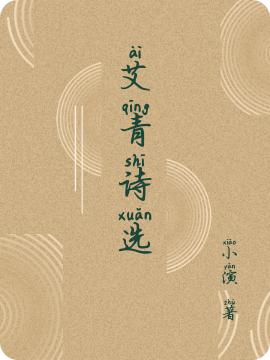 ài
艾
qīng
青
shī
诗
xuǎn
选
xiǎo
小
yǎn
演
zhù
著